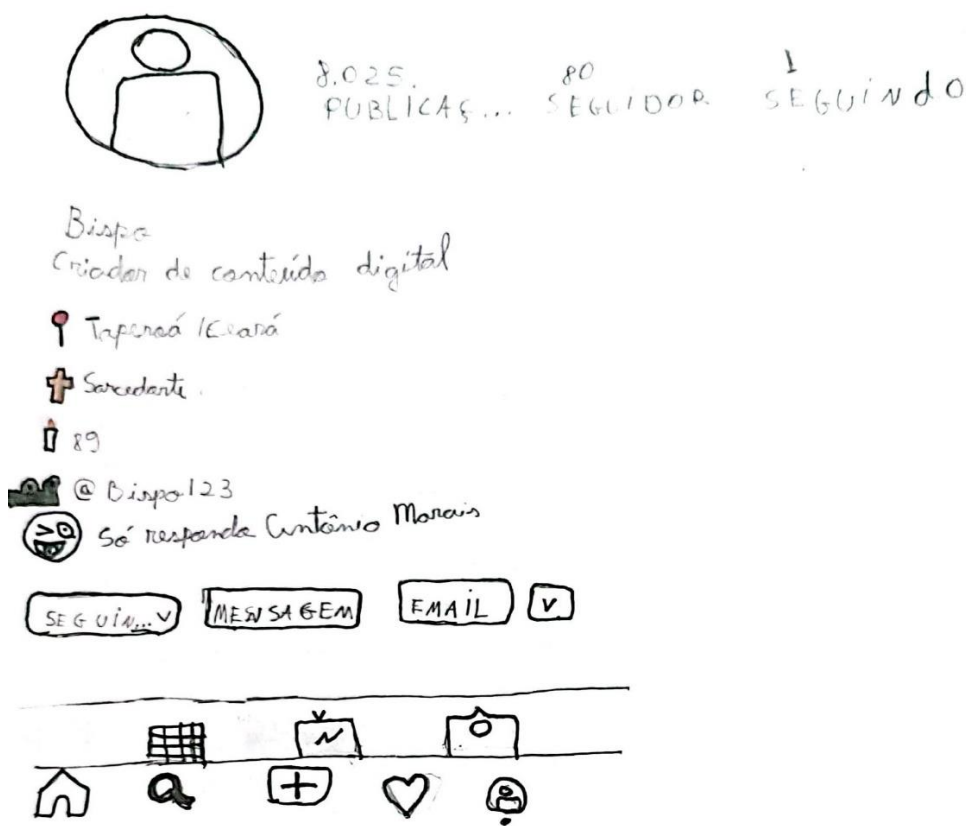 8.025. 80 1
PUBLICAÇ... SEGUIDOR SEGUINDO
Bispo
Criador de conteúdo digital
Taperoá /Ceará
Sarcedante.
89
@Bispo123
Só responda Antônio Morais
SEGUIN... v MENSAGEM EMAIL v